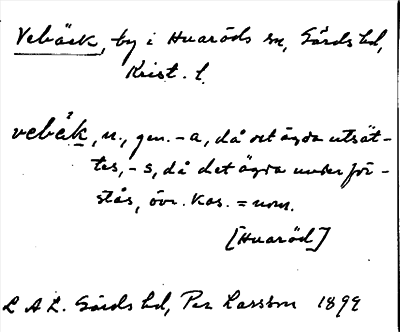 Vebäck, by i Huaröds sn, Gärds hd,
Krist. l.
vebäk, n., gen. -a, då det ägda utsät-
tes, -s, då det ägda underför-
stås, övr. kas. = nom.
[Huaröd]
L A L. Gärds hd, Per Larsson 1899